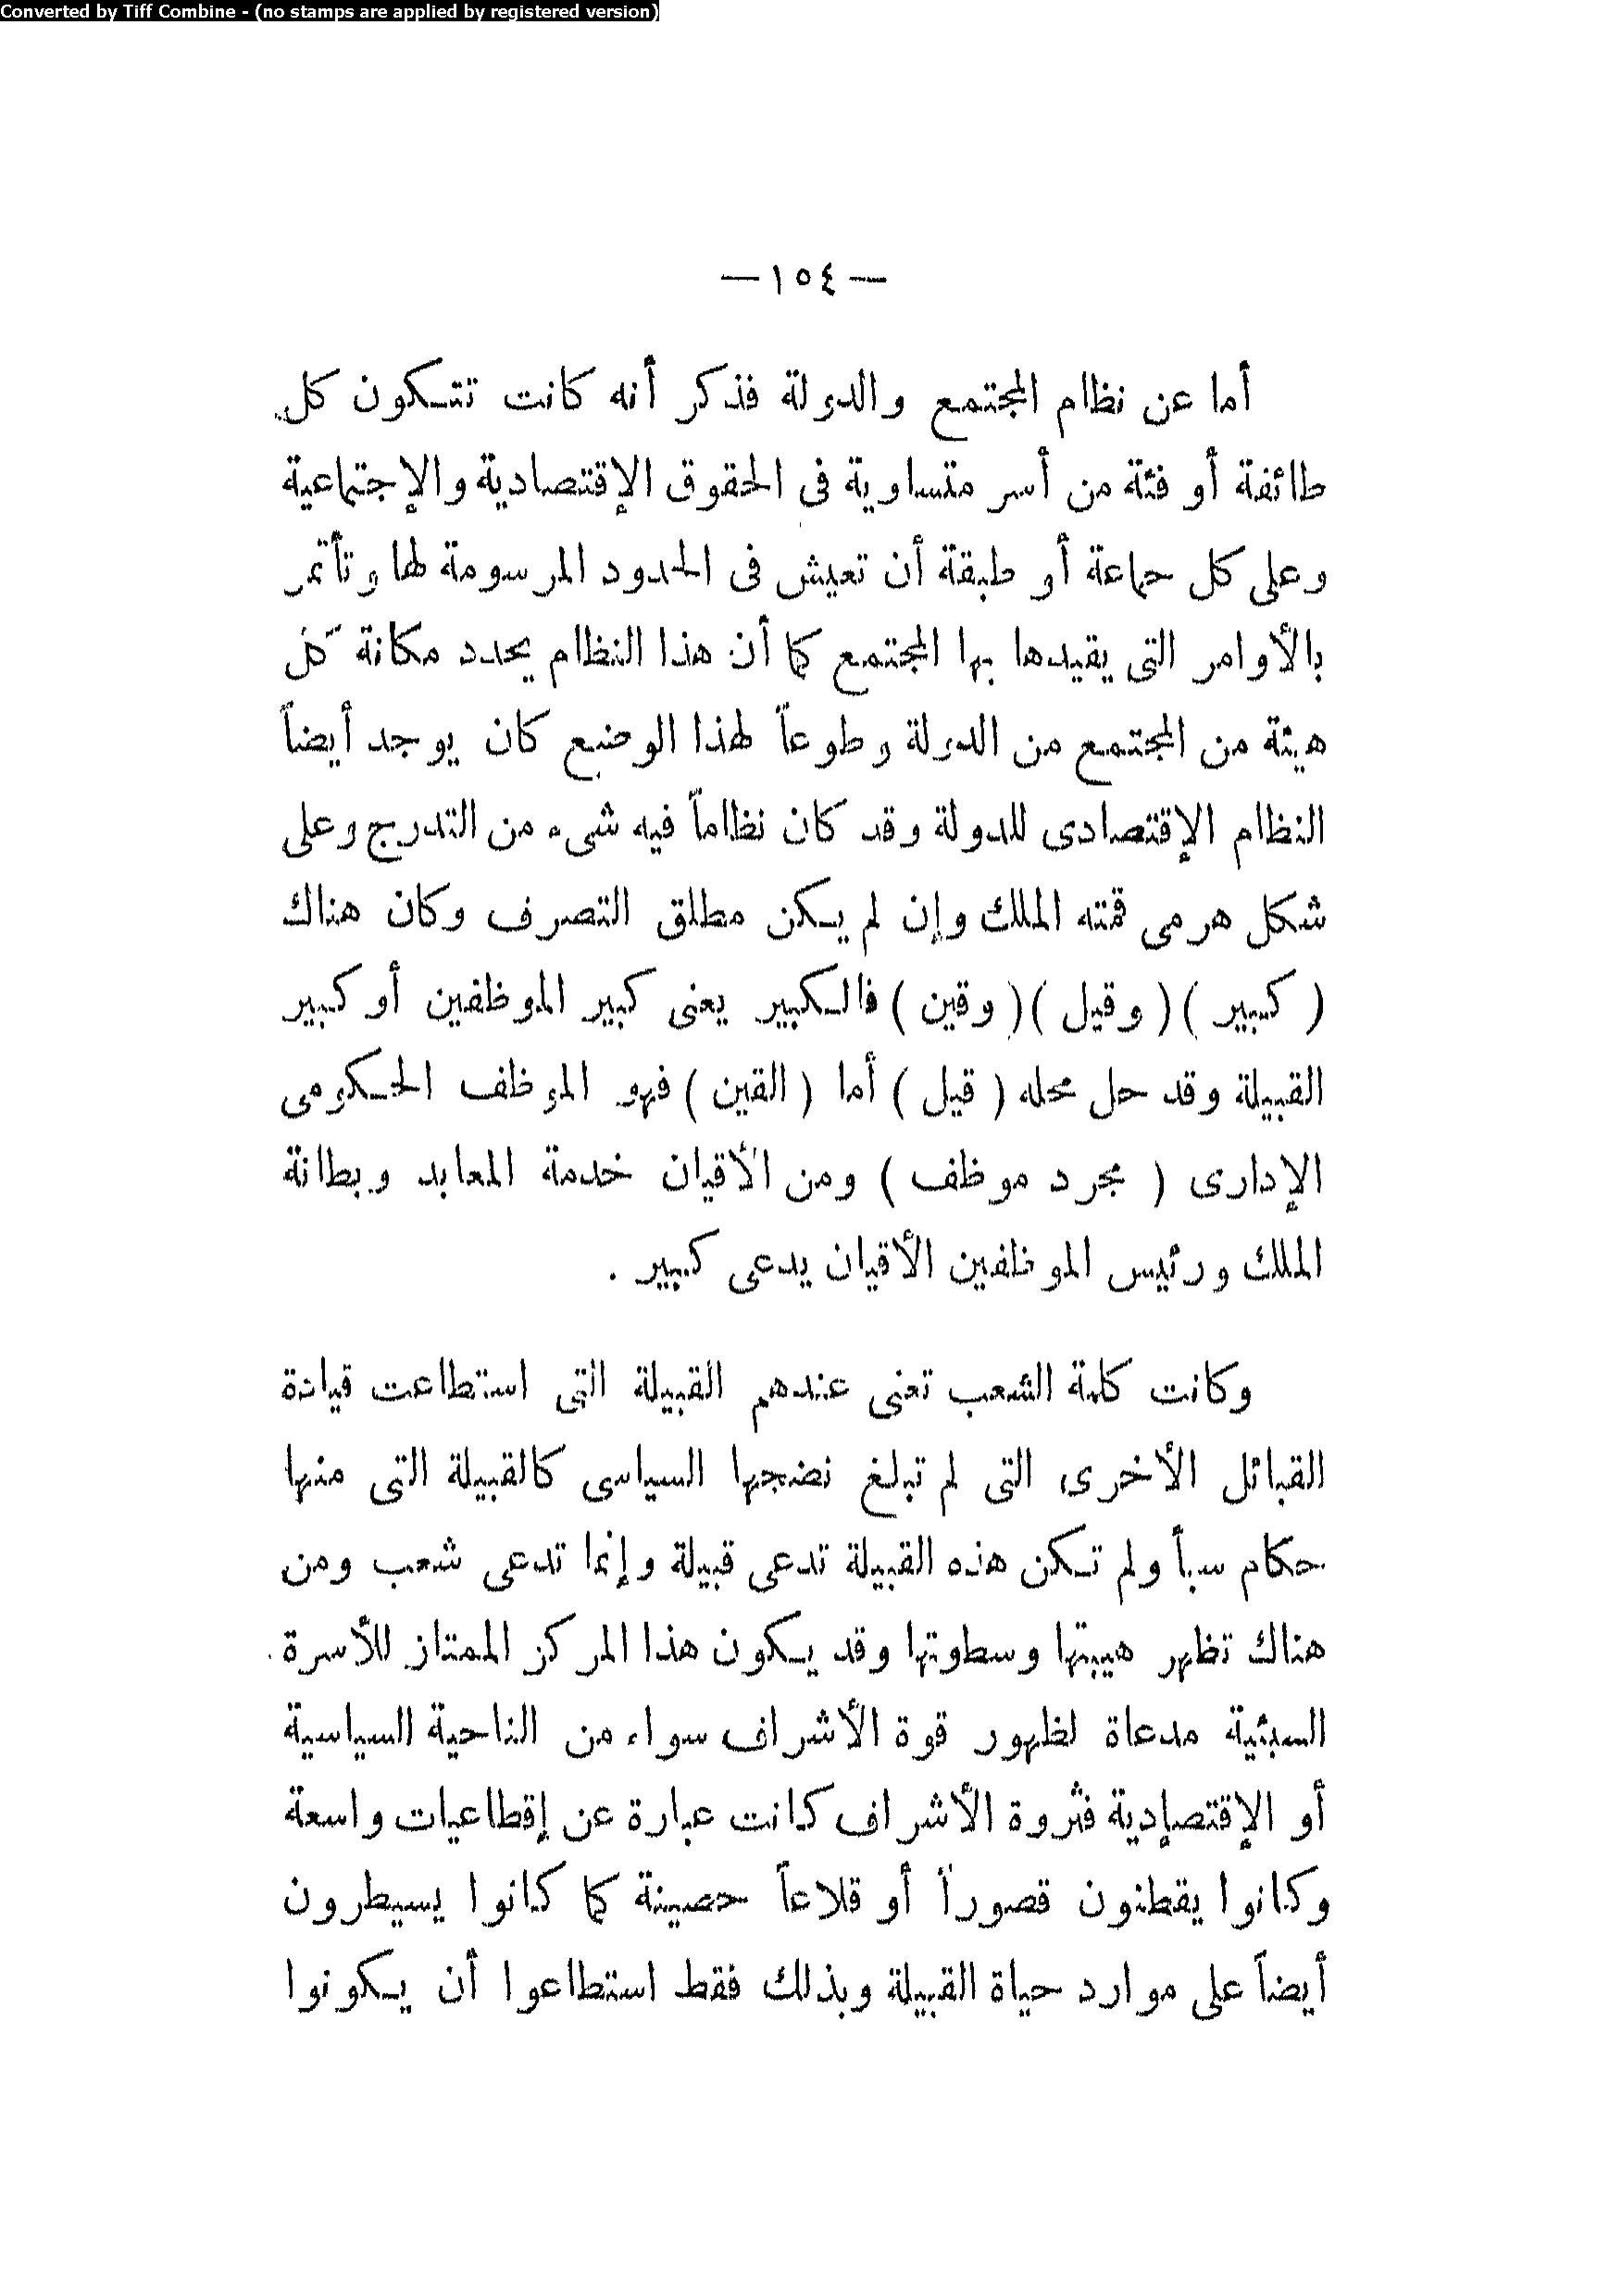 Converted by Tiff Combine - (no stamps are applied by registered version)
— ١٥٤ —
أما عن نظام المجتمع والدولة فذكر أنه كانت تتكون كل
طائفة أو فئة من أسر متساوية فى الحقوق الإقتصادية والإجتماعية
وعلى كل جماعة أو طبقة أن تعيش فى الحدود المرسومة لها وتأتمر
بالأوامر التى يقيدها بها المجتمع كما أن هذا النظام يحدد مكانة كل
هيئة من المجتمع من الدولة وطوعاً لهذا الوضع كان يوجد أيضاً
النظام الإقتصادى للدولة وقد كان نظاماً فيه شىء من التدرج وعلى
شكل هرمى قمته الملك وإن لم يكن مطلق التصرف وكان هناك
( كبير ) ( وقيل ) ( وقين ) فالكبير يعنى كبير الموظفين أو كبير
القبيلة وقد حل محله ( قيل ) أما ( القين ) فهو الموظف الحكومى
الإدارى ( مجرد موظف ) ومن الأقيان خدمة المعابد وبطانة
الملك ورئيس الموظفين الأقيان يدعى كبير .
وكانت كلمة الشعب تعنى عندهم القبيلة التى استطاعت قيادة
القبائل الأخرى التى لم تبلغ نضجها السياسى كالقبيلة التى منها
حكام سبأ ولم تكن هذه القبيلة تدعى قبيلة وإنما تدعى شعب ومن
هناك تظهر هيبتها وسطوتها وقد يكون هذا المركز الممتاز للأسرة
السبئية مدعاة لظهور قوة الأشراف سواء من الناحية السياسية
أو الإقتصادية فثروة الأشراف كانت عبارة عن إقطاعيات واسعة
وكانوا يقطنون قصوراً أو قلاعاً حصينة كما كانوا يسيطرون
أيضاً على موارد حياة القبيلة وبذلك فقط استطاعوا أن يكونوا